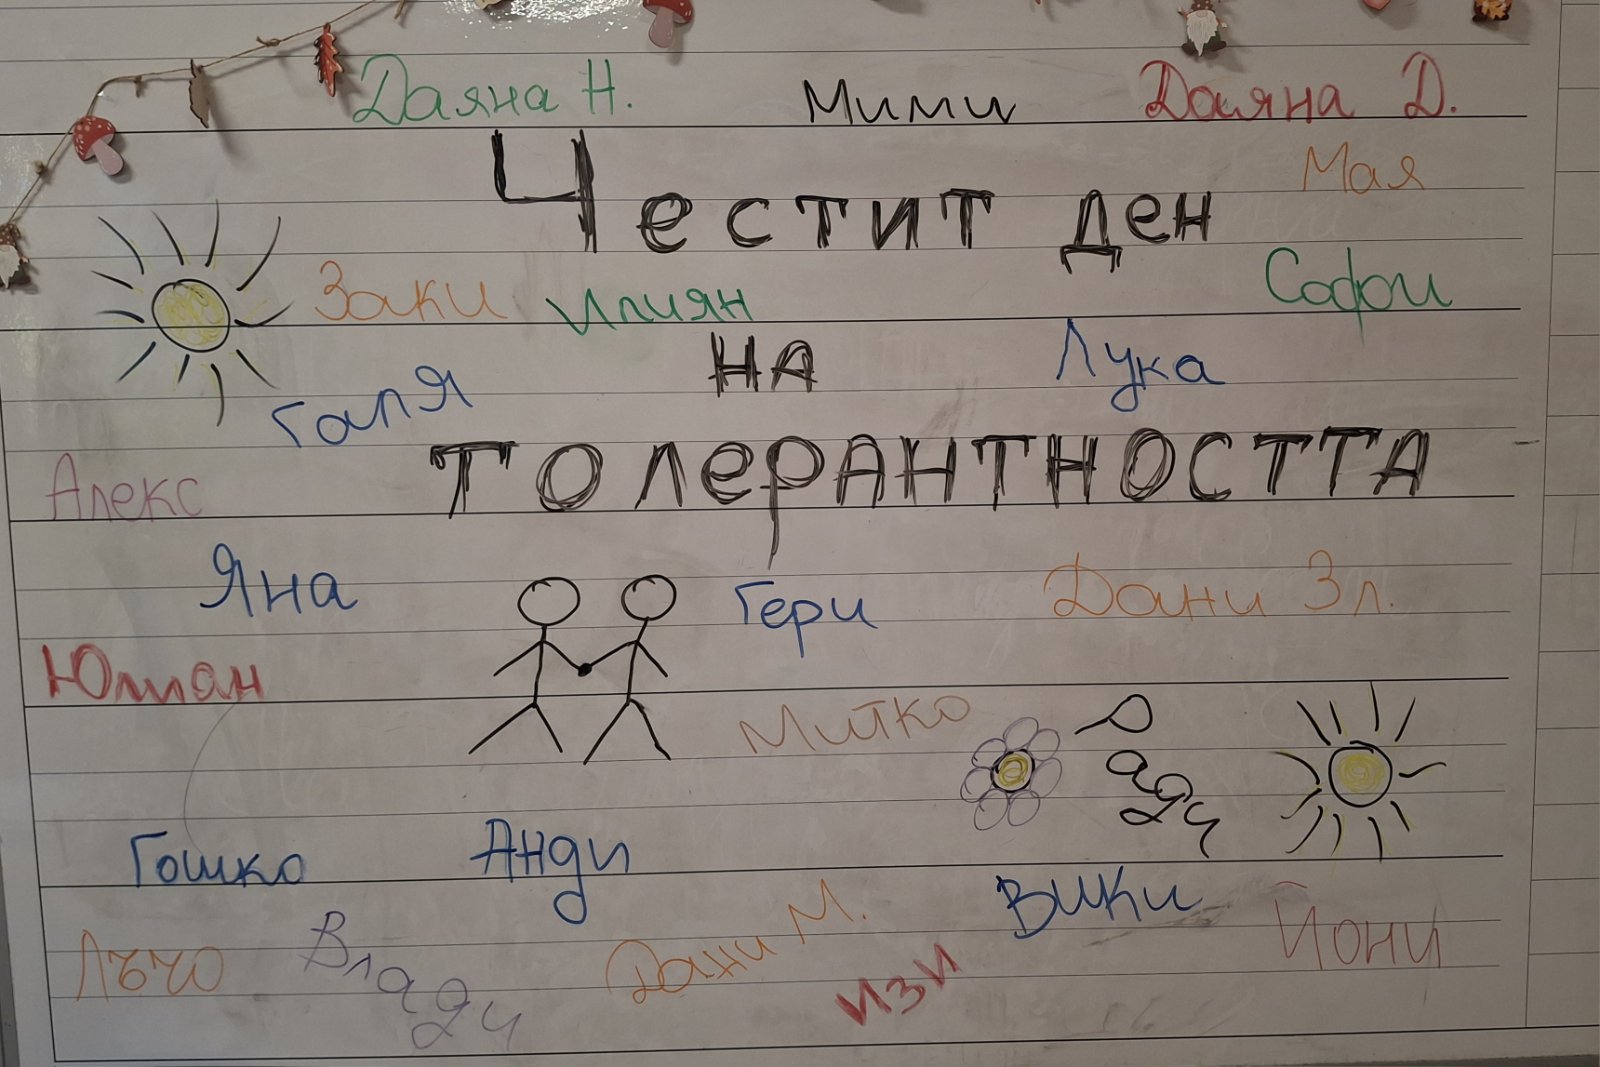 Даяна Н. Мими Даяна Д.
Мая
Честит ден
Заки Илиян Софи
на Лука
Галя
толерантността
Алекс
Яна Гери Дани Зл.
Юлиан
Митко Ради
Гошко Анди
Вики
Лъчо Влади Дани М. Изи Йони